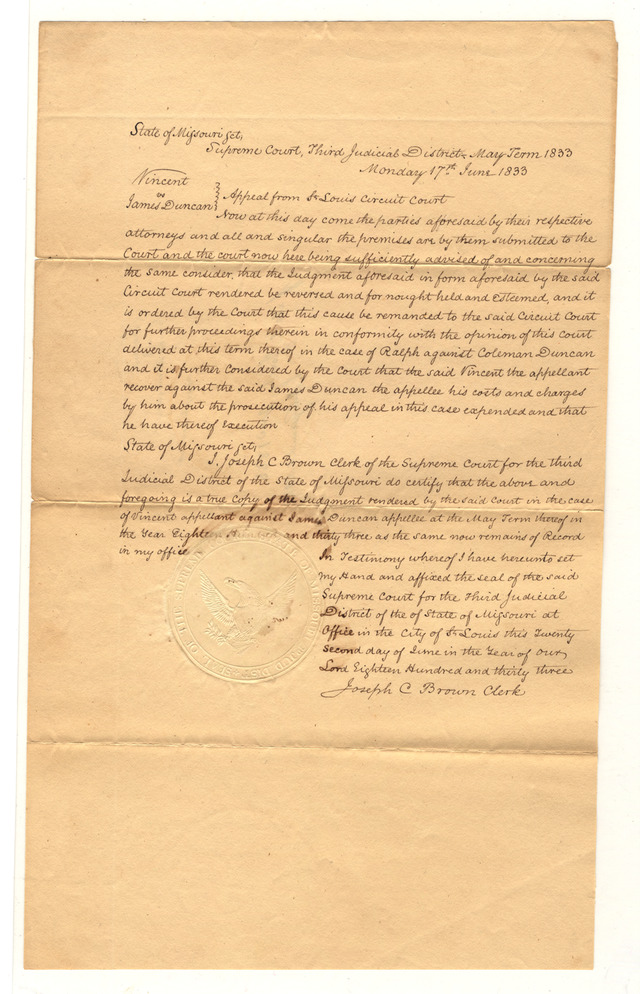 State of Missouri Sct,
Supreme Court, Third Judicial District May Term 1833
Monday 17th June 1833
Vincent
vs
James Duncan
Appeal from St Louis Circuit Court
Now at this day come the parties aforesaid by their respective
attorneys and all and singular the premises are by them submitted to the
Court and the court now here being sufficiently advised of and concerning
the same consider, that the Judgment aforesaid in form aforesaid by the said
Circuit Court rendered be reversed and for nought held and Esteemed, and it
is ordered by the Court that this cause be remanded to the said Circuit Court
for further proceedings therein in conformity with the opinion of this court
delivered at this term thereof in the case of Ralph against Coleman Duncan
and it is further Considered by the Court that the said Vincent the appellant
recover against the said James Duncan the appellee his costs and charges
by him about the prosecution of his appeal in this case expended and that
he have thereof execution
State of Missouri Sct,
I, Joseph C Brown Clerk of the Supreme Court for the third
Judicial District of the State of Missouri do certify that the above and
foregoing is a true Copy of the Judgment rendered by the said Court in the case
of Vincent appellant against James Duncan appellee at the May Term thereof in
the Year Eighteen Hundred and thirty three as the same now remains of Record
in my office
In Testimony whereof I have hereunto set
my Hand and affixed the seal of the said
Supreme Court for the Third Judicial
District of the of State of Missouri at
Office in the City of St Louis this Twenty
Second day of June in the Year of our
Lord Eighteen Hundred and thirty three
Joseph C Brown Clerk